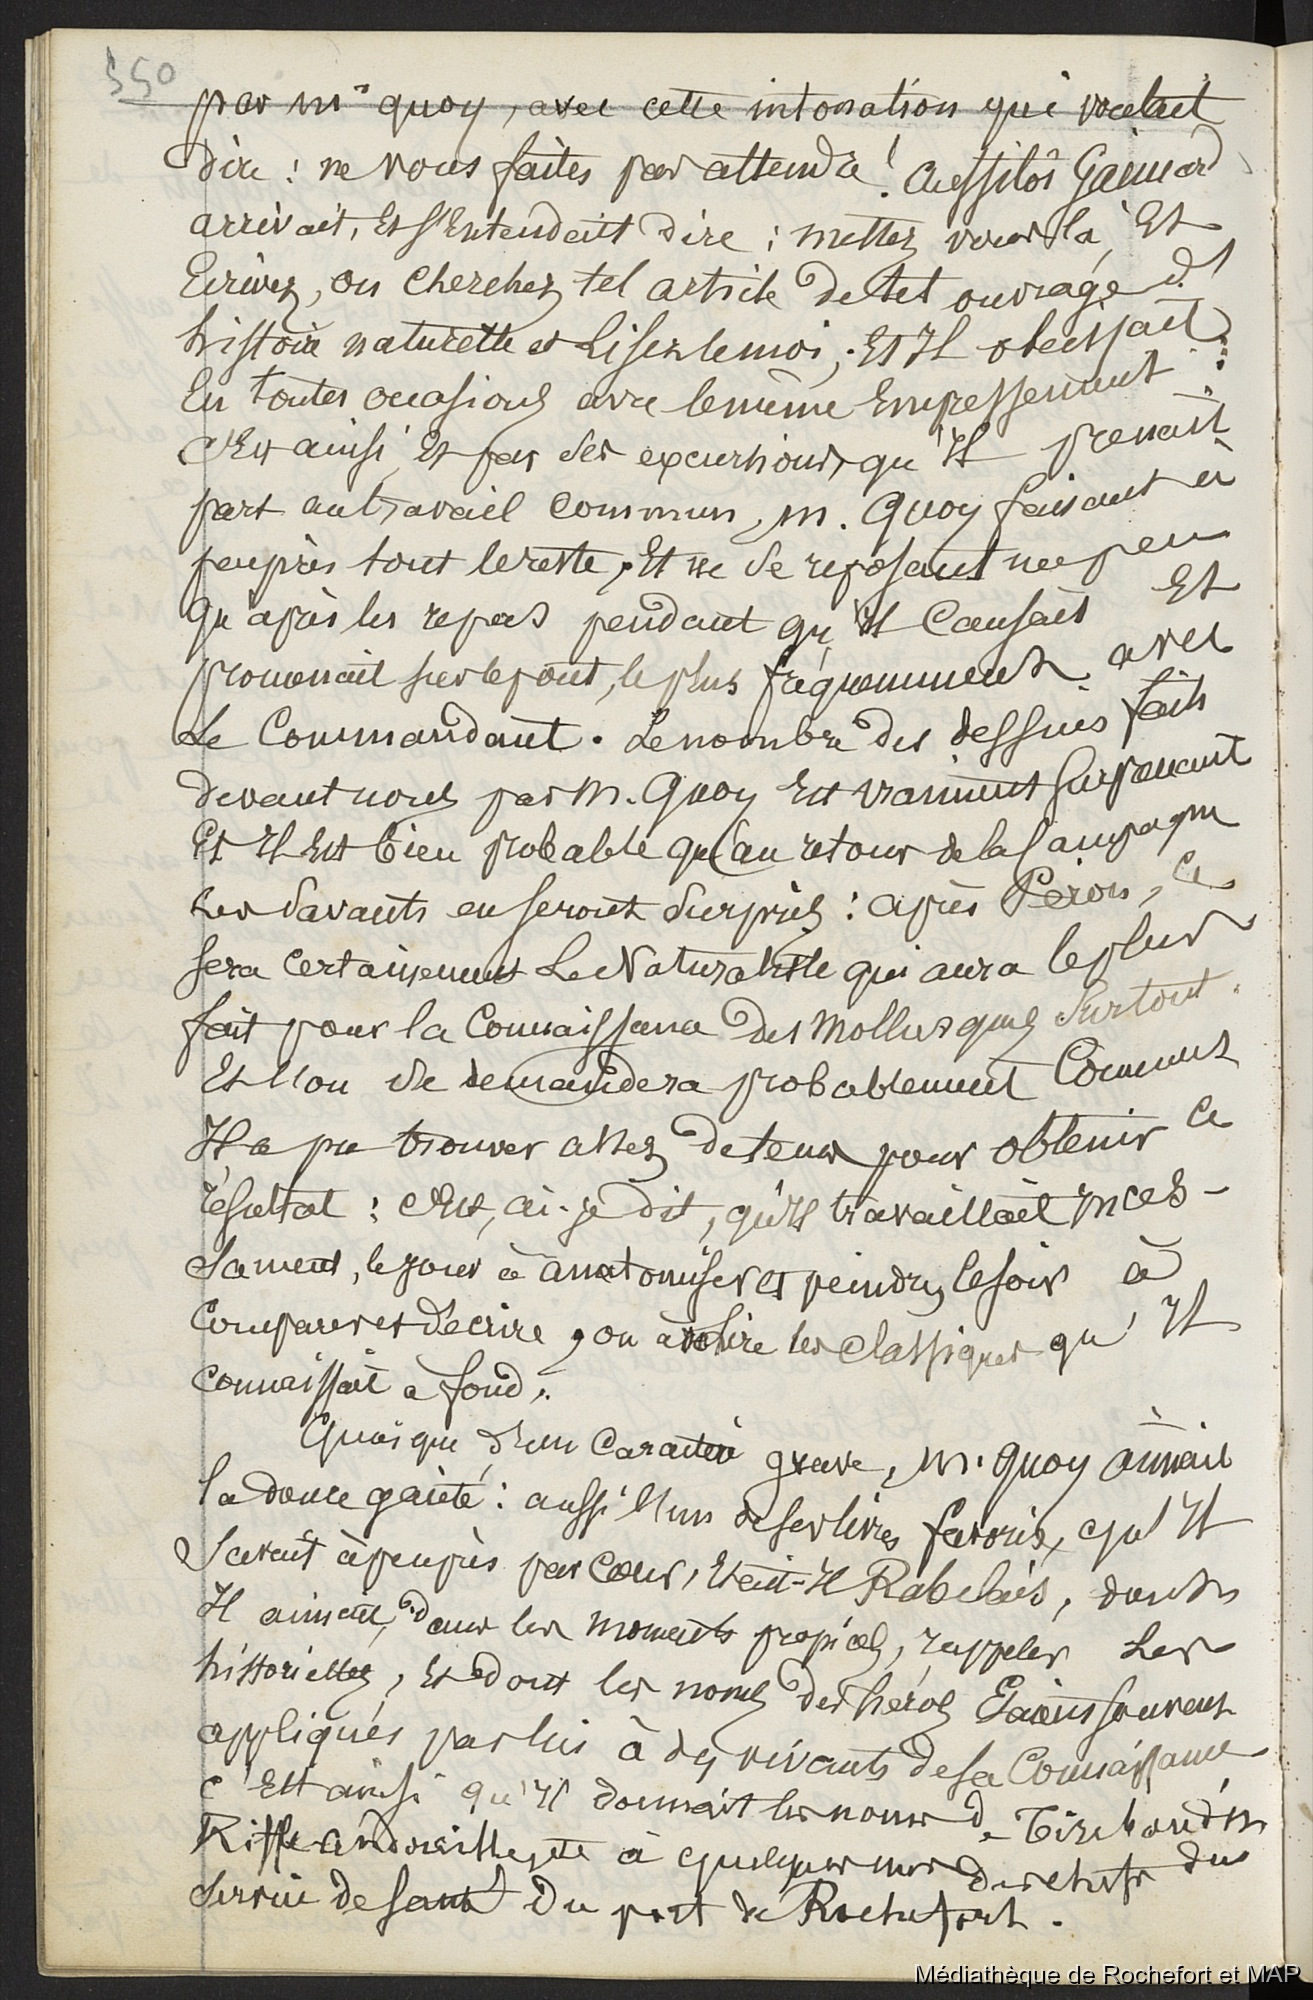 550
par mr quoy, avec cette intonation qui voulait
dire : ne vous faites pas attendre ! Aussitôt Gaimard
arrivait, Et s'Entendait dire : mettez vous là, Et
Ecrivez, ou cherchez tel article de tel ouvrage d'
histoire naturelle et Lisez le moi, Et Il obéissait
En toutes occasions avec le même Empressement :
c'Est ainsi, Et par ses excursions, qu'Il prenait
part au travail commun, m. Quoy faisant à
peu près tout le reste, Et ne se reposant un peu
qu'après les repas pendant qu'Il Causait Et
promenait sur le pont, le plus fréquemment avec
Le Commandant. Le nombre des dessins faits
devant nous par M. Quoy Est vraiment surprenant
Et Il Est bien probable qu'au retour de la Campagne
les Savants en seront Surpris : après Péron, ce
sera certainement Le Naturaliste qui aura le plus
fait pour la Connaissance des Mollusques Surtout.
Et l'on se demandera probablement Comment
Il a pu trouver assez de tems pour obtenir ce
résultat : c'Est, ai-je dit, qu'Il travaillait Inces-
samment, le jour à anatomiser et peindre, le soir à
Comparer et décrire, ou à relire les classiques qu'Il
connaissait à fond.
Quoique d'un Caractère grave, M. Quoy aimait
la douce gaieté : aussi l'un de ses livres favoris, qu'Il
Savait à peu près par cœur, Etait-Il Rabelais, dont
Il aimait, dans les moments propices, rappeler Les
historiettes, Et dont les noms des héros Etaient souvent
appliqués par lui à des vivants de sa Connaissance
c'Est ainsi qu'Il donnait les noms de
Riflandouille, à quelques uns des chefs du
Service de santé Du port de Rochefort.
Médiathèque de Rochefort et MAP